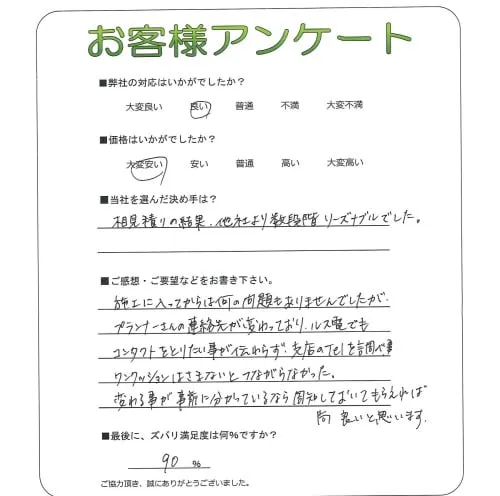 お客様アンケート
■弊社の対応はいかがでしたか？
大変良い 良い 普通 不満 大変不満
■価格はいかがでしたか？
大変安い 安い 普通 高い 大変高い
■当社を選んだ決め手は？
相見積りの結果、他社より数段階リーズナブルでした。
■ご感想・ご要望などをお書き下さい。
施工に入ってからは何の問題もありませんでしたが、
プランナーさんの連絡先が変わっており、ルス電でも
コンタクトをとりたい事が伝わらず、支店のTelを調べ
ワンクッションはさまないとつながらなかった。
変わる事が事前に分かっているなら周知しておいてもらえれば
尚良いと思います。
■最後に、ズバリ満足度は何%ですか？
90 %
ご協力頂き、誠にありがとうございました。